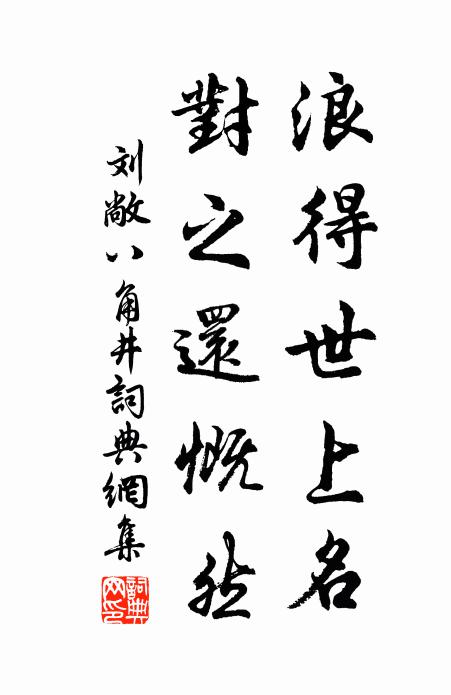 浪得世上名
對之還慨然
刘敞八角井詞典網集
詞典网印